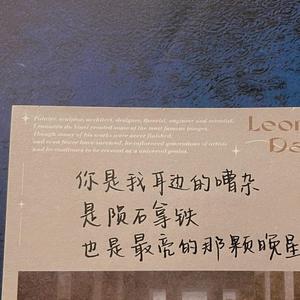 Painter, sculptor, architect, designer, theorist, engineer and scientist,
Leonardo da Vinci created some of the most famous images.
Though many of his works were never finished,
and even fewer have survived, he influenced generations of artists
and he continues to be revered as a universal genius.
Leon
Da
你是我耳边的嘈杂
是陨石拿铁
也是最亮的那颗晚星